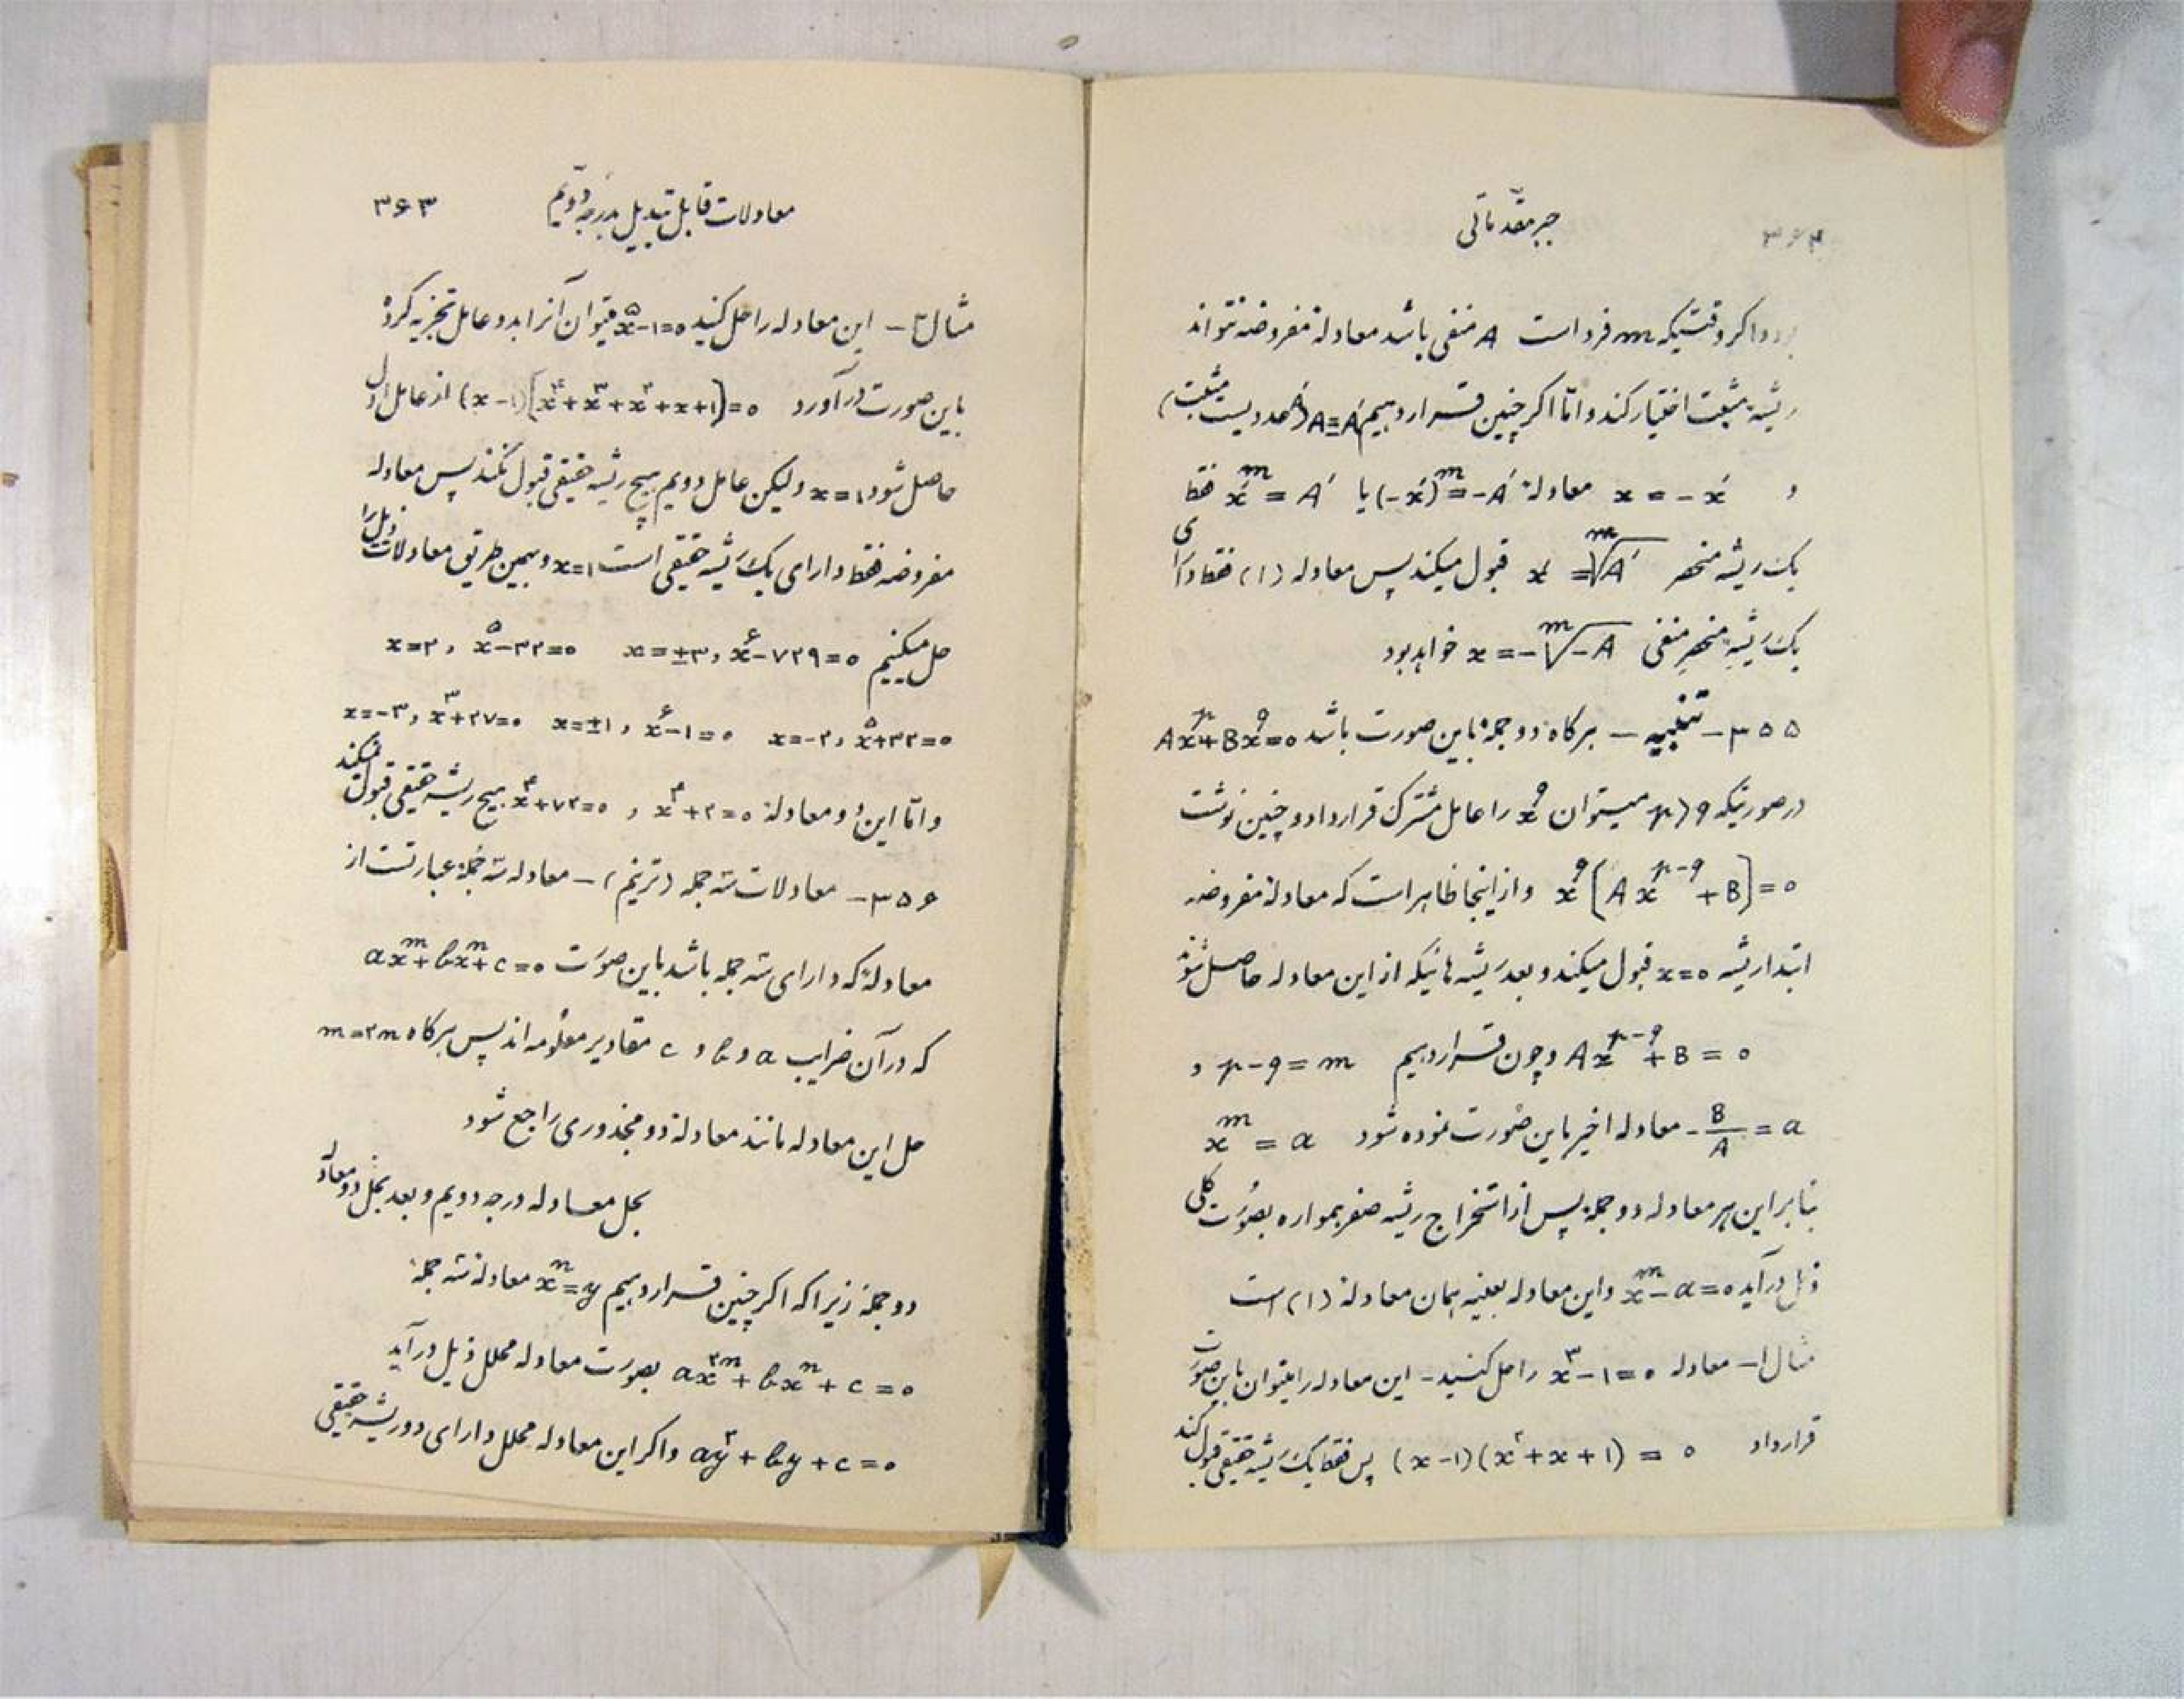 جبر مقدّماتی
واکر وقتیکه m فرد است A منفی باشد معادلهٔ مفروضه نتواند
ریشهٔ مثبت اختیار کند و امّا اگر چنین قرار دهیم A=-A′ (A′ عددیست مثبت)
و x = -x′ معادلهٔ (-x′)^m = -A′ یا x′^m = A′ فقط
یک ریشهٔ منحصر x′ = ᵐ√A′ قبول میکند پس معادله (۱) فقط دارای
یک ریشهٔ منحصر منفی x = -ᵐ√-A خواهد بود
۳۵۵ - تنبیه - هرگاه دو جملهٔ باین صورت باشد Ax^p+Bx^q=۰
در صورتیکه p>q میتوان x^q را عامل مشترک قرار داد و چنین نوشت
x^q[Ax^{p-q}+B]=۰ و از اینجا ظاهر است که معادلهٔ مفروضه
ابتدا ریشه x=۰ قبول میکند و بعد ریشه هائیکه از این معادله حاصل شوند
Ax^{p-q}+B=۰ و چون قرار دهیم p-q=m و
-B/A=a معادله اخیر باین صورت نموده شود x^m=a
بنابراین هر معادله دو جملهٔ پس از استخراج ریشه صفر همواره بصورت کلی
ذیل درآید x^m-a=۰ و این معادله بعینه همان معادلهٔ (۱) است
مثال ۱ - معادله x^۳-۱=۰ را حل کنید - این معادله را میتوان باین صورت
قرار داد (x-۱)(x^۲+x+۱)=۰ پس فقط یک ریشه حقیقی قبول کند
معادلات قابل تبدیل بدرجه دوّیم ۳۶۳
مثال ۲ - این معادله را حل کنید x^۵-۱=۰ میتوان آنرا بدو عامل تجزیه کرده
باین صورت درآورد (x-۱)[x^۴+x^۳+x^۲+x+۱]=۰ از عامل اول
حاصل شود x=۱ ولیکن عامل دویم هیچ ریشه حقیقی قبول نکند پس معادله
مفروضه فقط دارای یک ریشه حقیقی است x=۱ و بهمین طریق معادلات ذیل را
حل میکنیم x^۶-۷۲۹=۰ و x=±۳ x^۵-۳۲=۰ و x=۲
x^۵+۳۲=۰ و x=-۲ x^۶-۱=۰ و x=±۱ x^۳+۲۷=۰ و x=-۳
و امّا این دو معادلهٔ x^۴+۲=۰ و x^۴+۷۲=۰ هیچ ریشه حقیقی قبول نمیکند
۳۵۶ - معادلات سه جمله (ترینم) - معادله سه جملهٔ عبارتست از
معادلهٔ که دارای سه جمله باشد باین صورت ax^m+bx^n+c=۰
که در آن ضرایب a و b و c مقادیر معلومه اند پس هرگاه m=۲n
حل این معادله مانند معادلهٔ دو مجذوری راجع شود
بحل معادله درجه دویم و بعد بحل دو معادله
دو جملهٔ زیرا که اگر چنین قرار دهیم x^n=y معادلهٔ سه جملهٔ
ax^{۲n}+bx^n+c=۰ بصورت معادله محلل ذیل درآید
ay^۲+by+c=۰ و اگر این معادله محلل دارای دو ریشه حقیقی